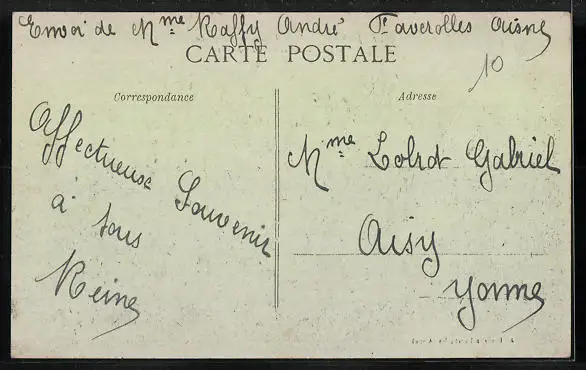 Envoi de Mme Raffy André Ft averolles Aisne
CARTE POSTALE
10
Correspondance
Adresse
Affectueux
Souvenir
à tous
Reine
Mme Lolrot Gabriel
Aisy
Yonne